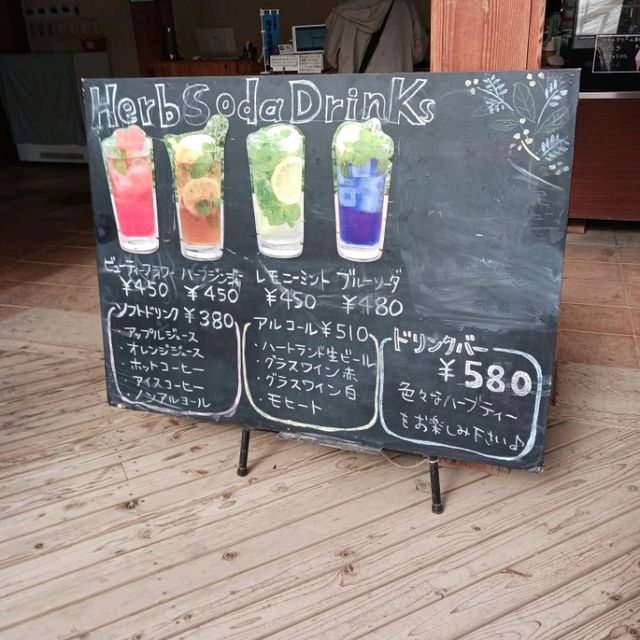 Herb Soda Drinks
ビューティーフラワー ハーブジンジャー レモニーミント ブルーソーダ
¥450 ¥450 ¥450 ¥480
ソフトドリンク ¥380
・アップルジュース
・オレンジジュース
・ホットコーヒー
・アイスコーヒー
・ノンアルコール
アルコール ¥510
・ハートランド生ビール
・グラスワイン赤
・グラスワイン白
・モヒート
ドリンクバー
¥580
色々なハーブティー
をお楽しみ下さい♪